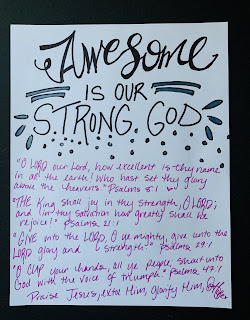 Awesome
IS OUR
STRONG GOD
"O LORD our Lord, how excellent is thy name
in all the earth! Who hast set thy glory
above the heavens." Psalms 8:1
"THE King shall joy in thy strength, O LORD;
and in thy salvation how greatly shall he
rejoice!" Psalms 21:1
"GIVE unto the LORD, O ye mighty, give unto the
LORD glory and strength." Psalms 29:1
"O CLAP your hands, all ye people, shout unto
God with the voice of triumph." Psalms 47:1
Praise Jesus, extol Him, Glorify Him,